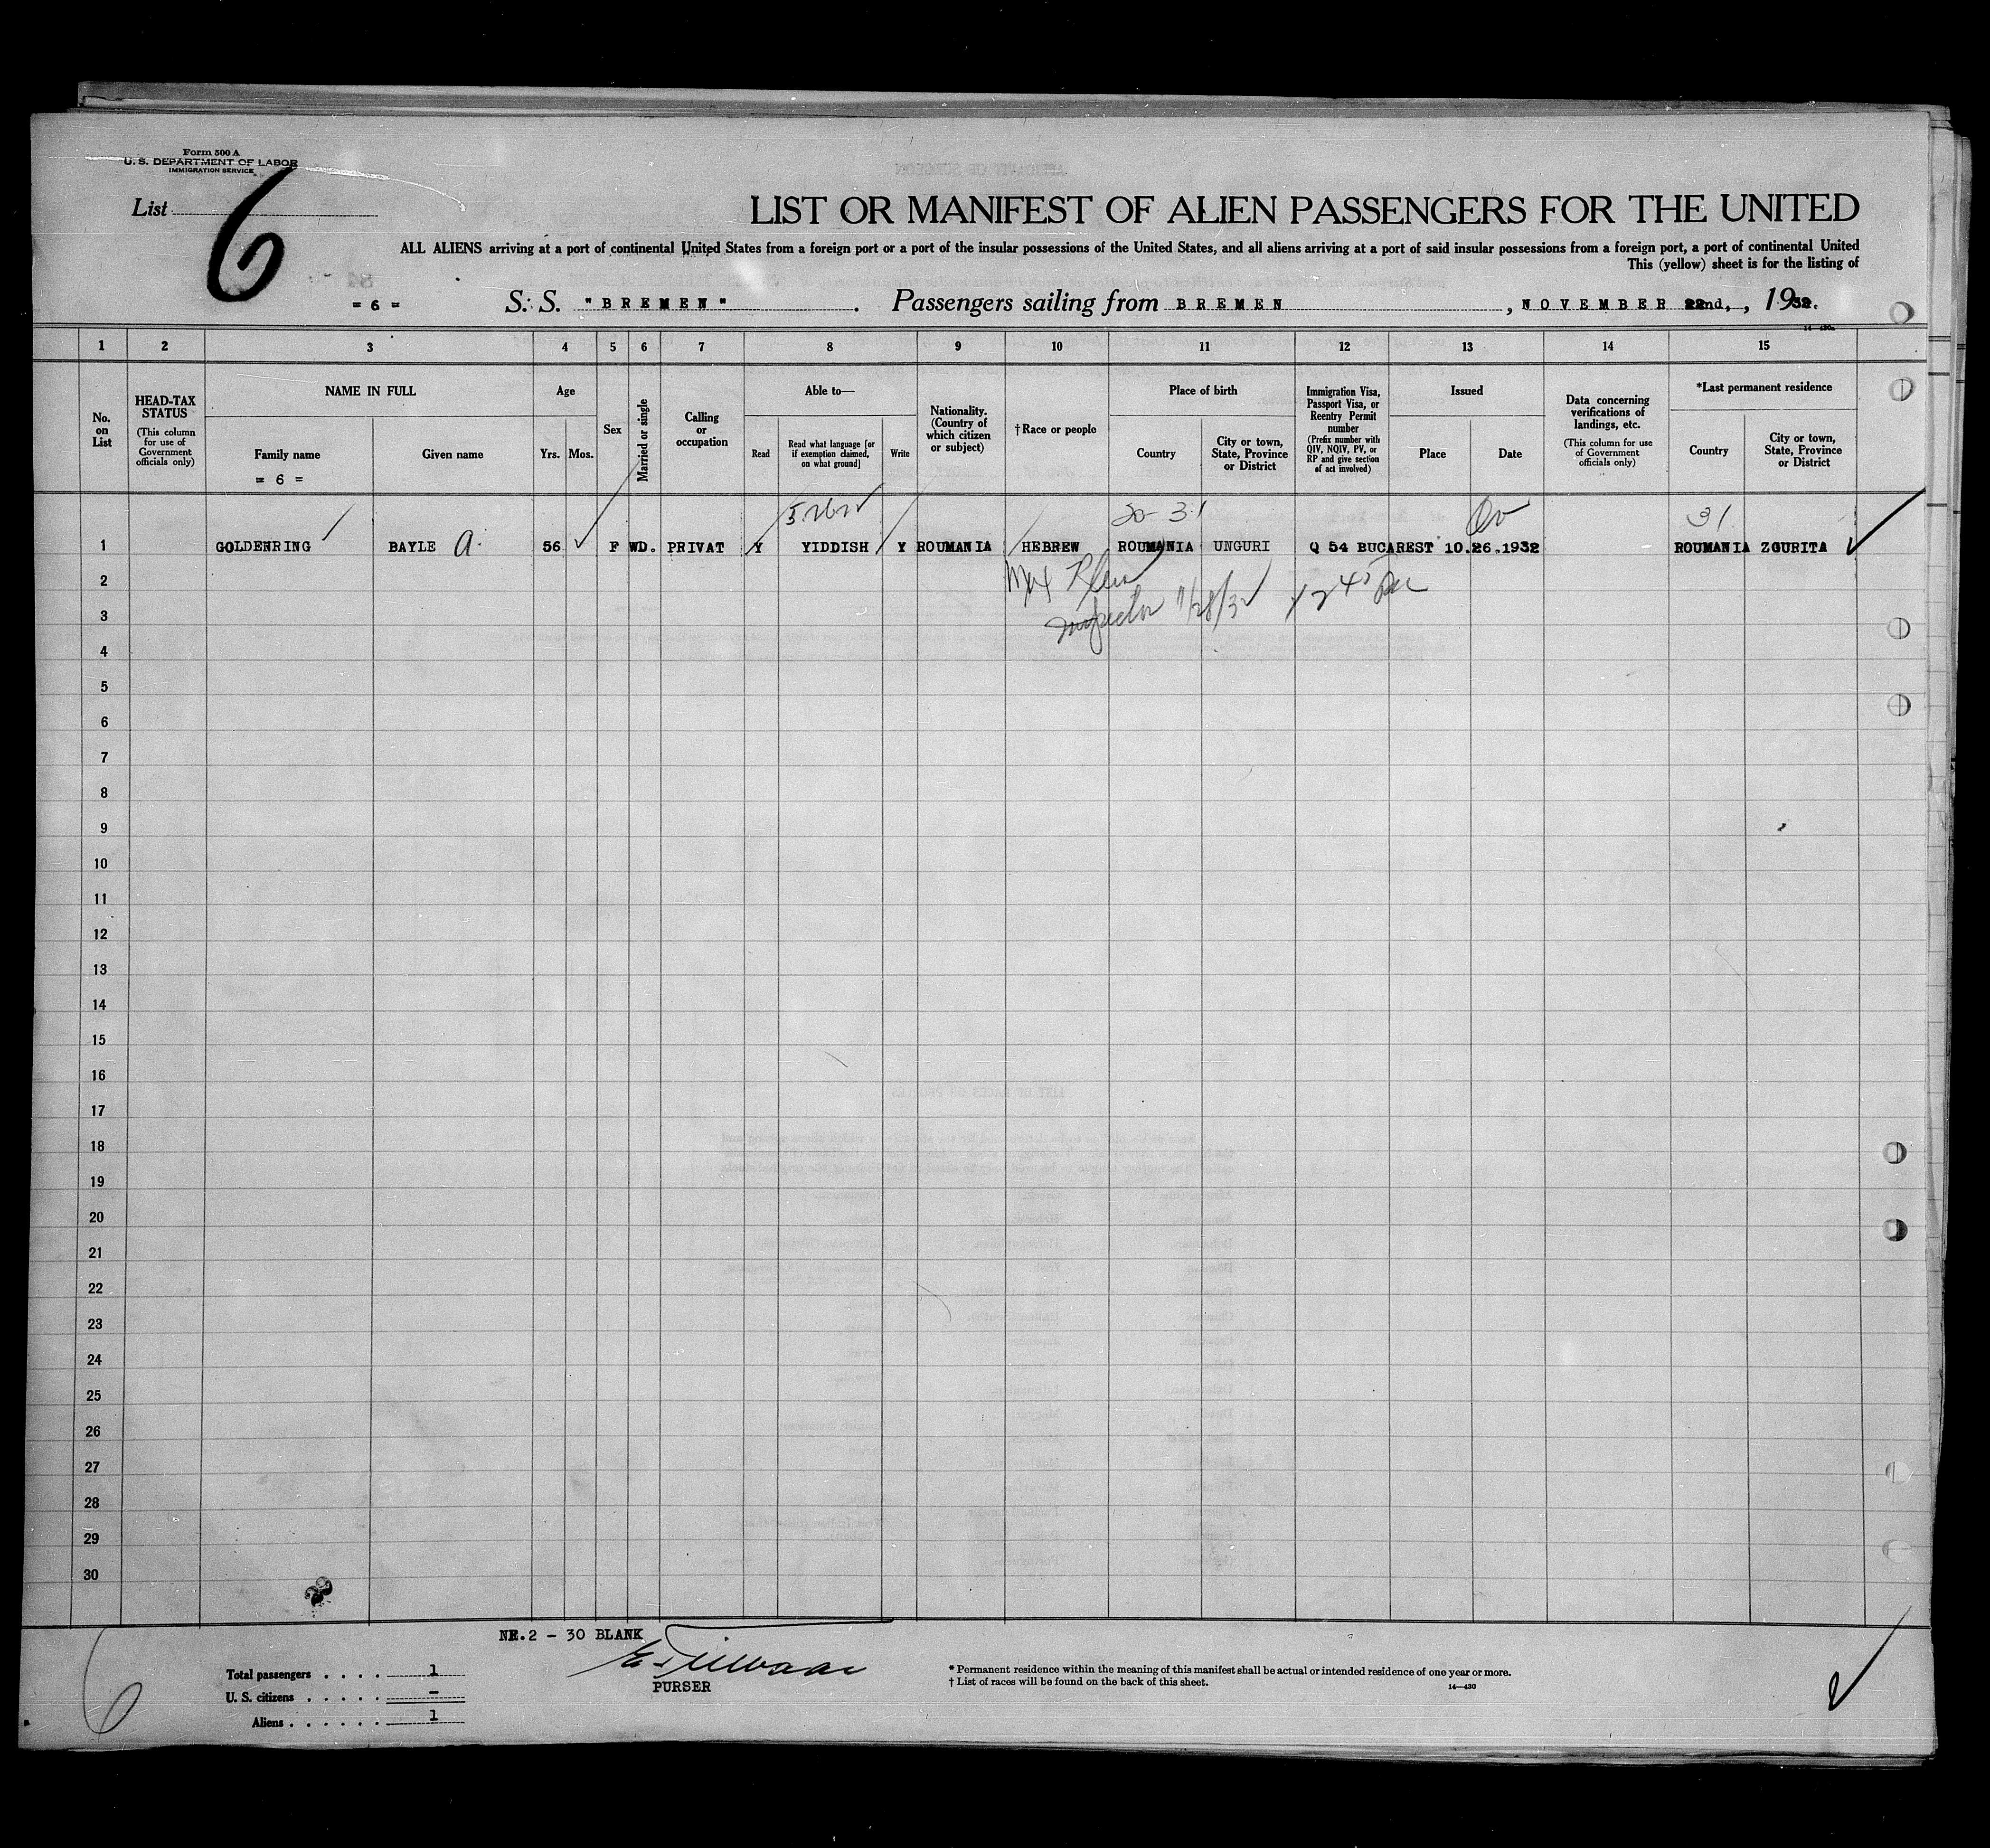 Form 500 A
U. S. DEPARTMENT OF LABOR
IMMIGRATION SERVICE
List 6
LIST OR MANIFEST OF ALIEN PASSENGERS FOR THE UNITED
ALL ALIENS arriving at a port of continental United States from a foreign port or a port of the insular possessions of the United States, and all aliens arriving at a port of said insular possessions from a foreign port, a port of continental United
This (yellow) sheet is for the listing of
= 6 = S. S. "BREMEN". Passengers sailing from BREMEN, NOVEMBER 22nd., 1932.
14-430a
1 2 3 4 5 6 7 8 9 10 11 12 13 14 15
No. on List
HEAD-TAX STATUS (This column for use of Government officials only)
NAME IN FULL
Family name
= 6 =
Given name
Age
Yrs. Mos.
Sex
Married or single
Calling or occupation
Able to—
Read
Read what language [or if exemption claimed, on what ground]
Write
Nationality. (Country of which citizen or subject)
†Race or people
Place of birth
Country
City or town, State, Province or District
Immigration Visa, Passport Visa, or Reentry Permit number (Prefix number with QIV, NQIV, PV, or RP and give section of act involved)
Issued
Place
Date
Data concerning verifications of landings, etc. (This column for use of Government officials only)
*Last permanent residence
Country
City or town, State, Province or District
20-31 31
1 GOLDENRING BAYLE A. 56 F WD. PRIVAT Y YIDDISH Y ROUMANIA HEBREW ROUMANIA UNGURI Q 54 BUCAREST 10.26.1932 ROUMANIA ZGURITA
2 Max
3 Inspector 11/28/32
4
5
6
7
8
9
10
11
12
13
14
15
16
17
18
19
20
21
22
23
24
25
26
27
28
29
30
NR.2 - 30 BLANK
PURSER
6
Total passengers . . . . 1
U. S. citizens . . . . . -
Aliens . . . . . . 1
* Permanent residence within the meaning of this manifest shall be actual or intended residence of one year or more.
† List of races will be found on the back of this sheet.
14—430